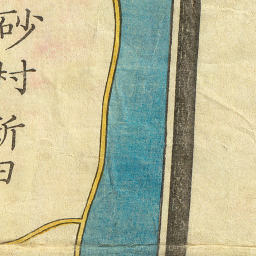 砂村新田